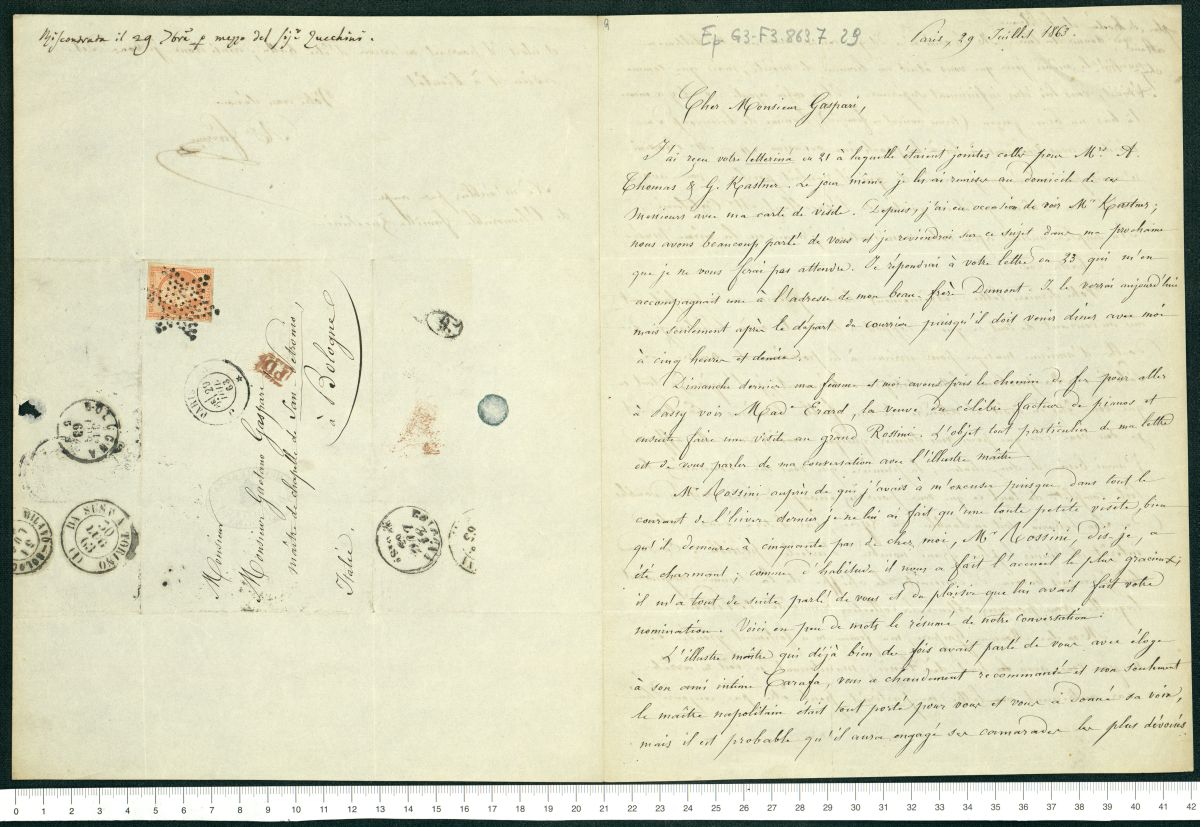 Riscontrata il 29 7bre p mezzo del Sigr Zucchini.
Ep. G3-F3.863.7.29
Paris, 29 Juillet 1863.
Cher Monsieur Gaspari,
J'ai reçu votre lettre du 21 à laquelle étaient jointes celles pour Mrs A.
Thomas & G. Kastner. Le jour même je les ai remises au domicile de ces
Messieurs avec ma carte de visite. Depuis, j'ai eu occasion de voir Mr Kastner;
nous avons beaucoup parlé de vous et je reviendrai sur ce sujet dans ma prochaine
que je ne vous ferai pas attendre. Je répondrai à votre lettre du 23 qui m'en
accompagnait une à l'adresse de mon beau-frère Dumont. Je le verrai aujourd'hui
mais seulement après le départ du courrier puisqu'il doit venir diner avec moi
à cinq heures et demie.
Dimanche dernier ma femme et moi avons pris le chemin de fer pour aller
à Passy voir Made Erard, la veuve du célèbre facteur de pianos et
ensuite faire une visite au grand Rossini. L'objet tout particulier de ma lettre
est de vous parler de ma conversation avec l'illustre maître.
Mr Rossini auprès de qui j'avais à m'excuser puisque dans tout le
courant de l'hiver dernier je ne lui ai fait qu'une toute petite visite, bien
qu'il demeure à cinquante pas de chez moi, Mr Rossini, dis-je, a
été charmant; comme d'habitude il nous a fait l'accueil le plus gracieux;
il m'a tout de suite parlé de vous et du plaisir que lui avait fait votre
nomination. Voici en peu de mots le résumé de notre conversation.
L'illustre maître qui déjà bien des fois avait parlé de vous avec éloge
à son ami intime Carafa, vous a chaudement recommandé et non seulement
le maître napolitain était tout porté pour vous et vous a donné sa voix,
mais il est probable qu'il aura engagé ses camarades les plus dévoués
Monsieur
Monsieur Gaetano Gaspari
maître de chapelle de San-Petronio
à Bologne
Italie.
PD
PARIS
29
63
BOLOGNA
63
DA SUSA A TORINO (1)
LUG
63
MILANO-BOLOGNA
31
0 1 2 3 4 5 6 7 8 9 10 11 12 13 14 15 16 17 18 19 20 21 22 23 24 25 26 27 28 29 30 31 32 33 34 35 36 37 38 39 40 41 42